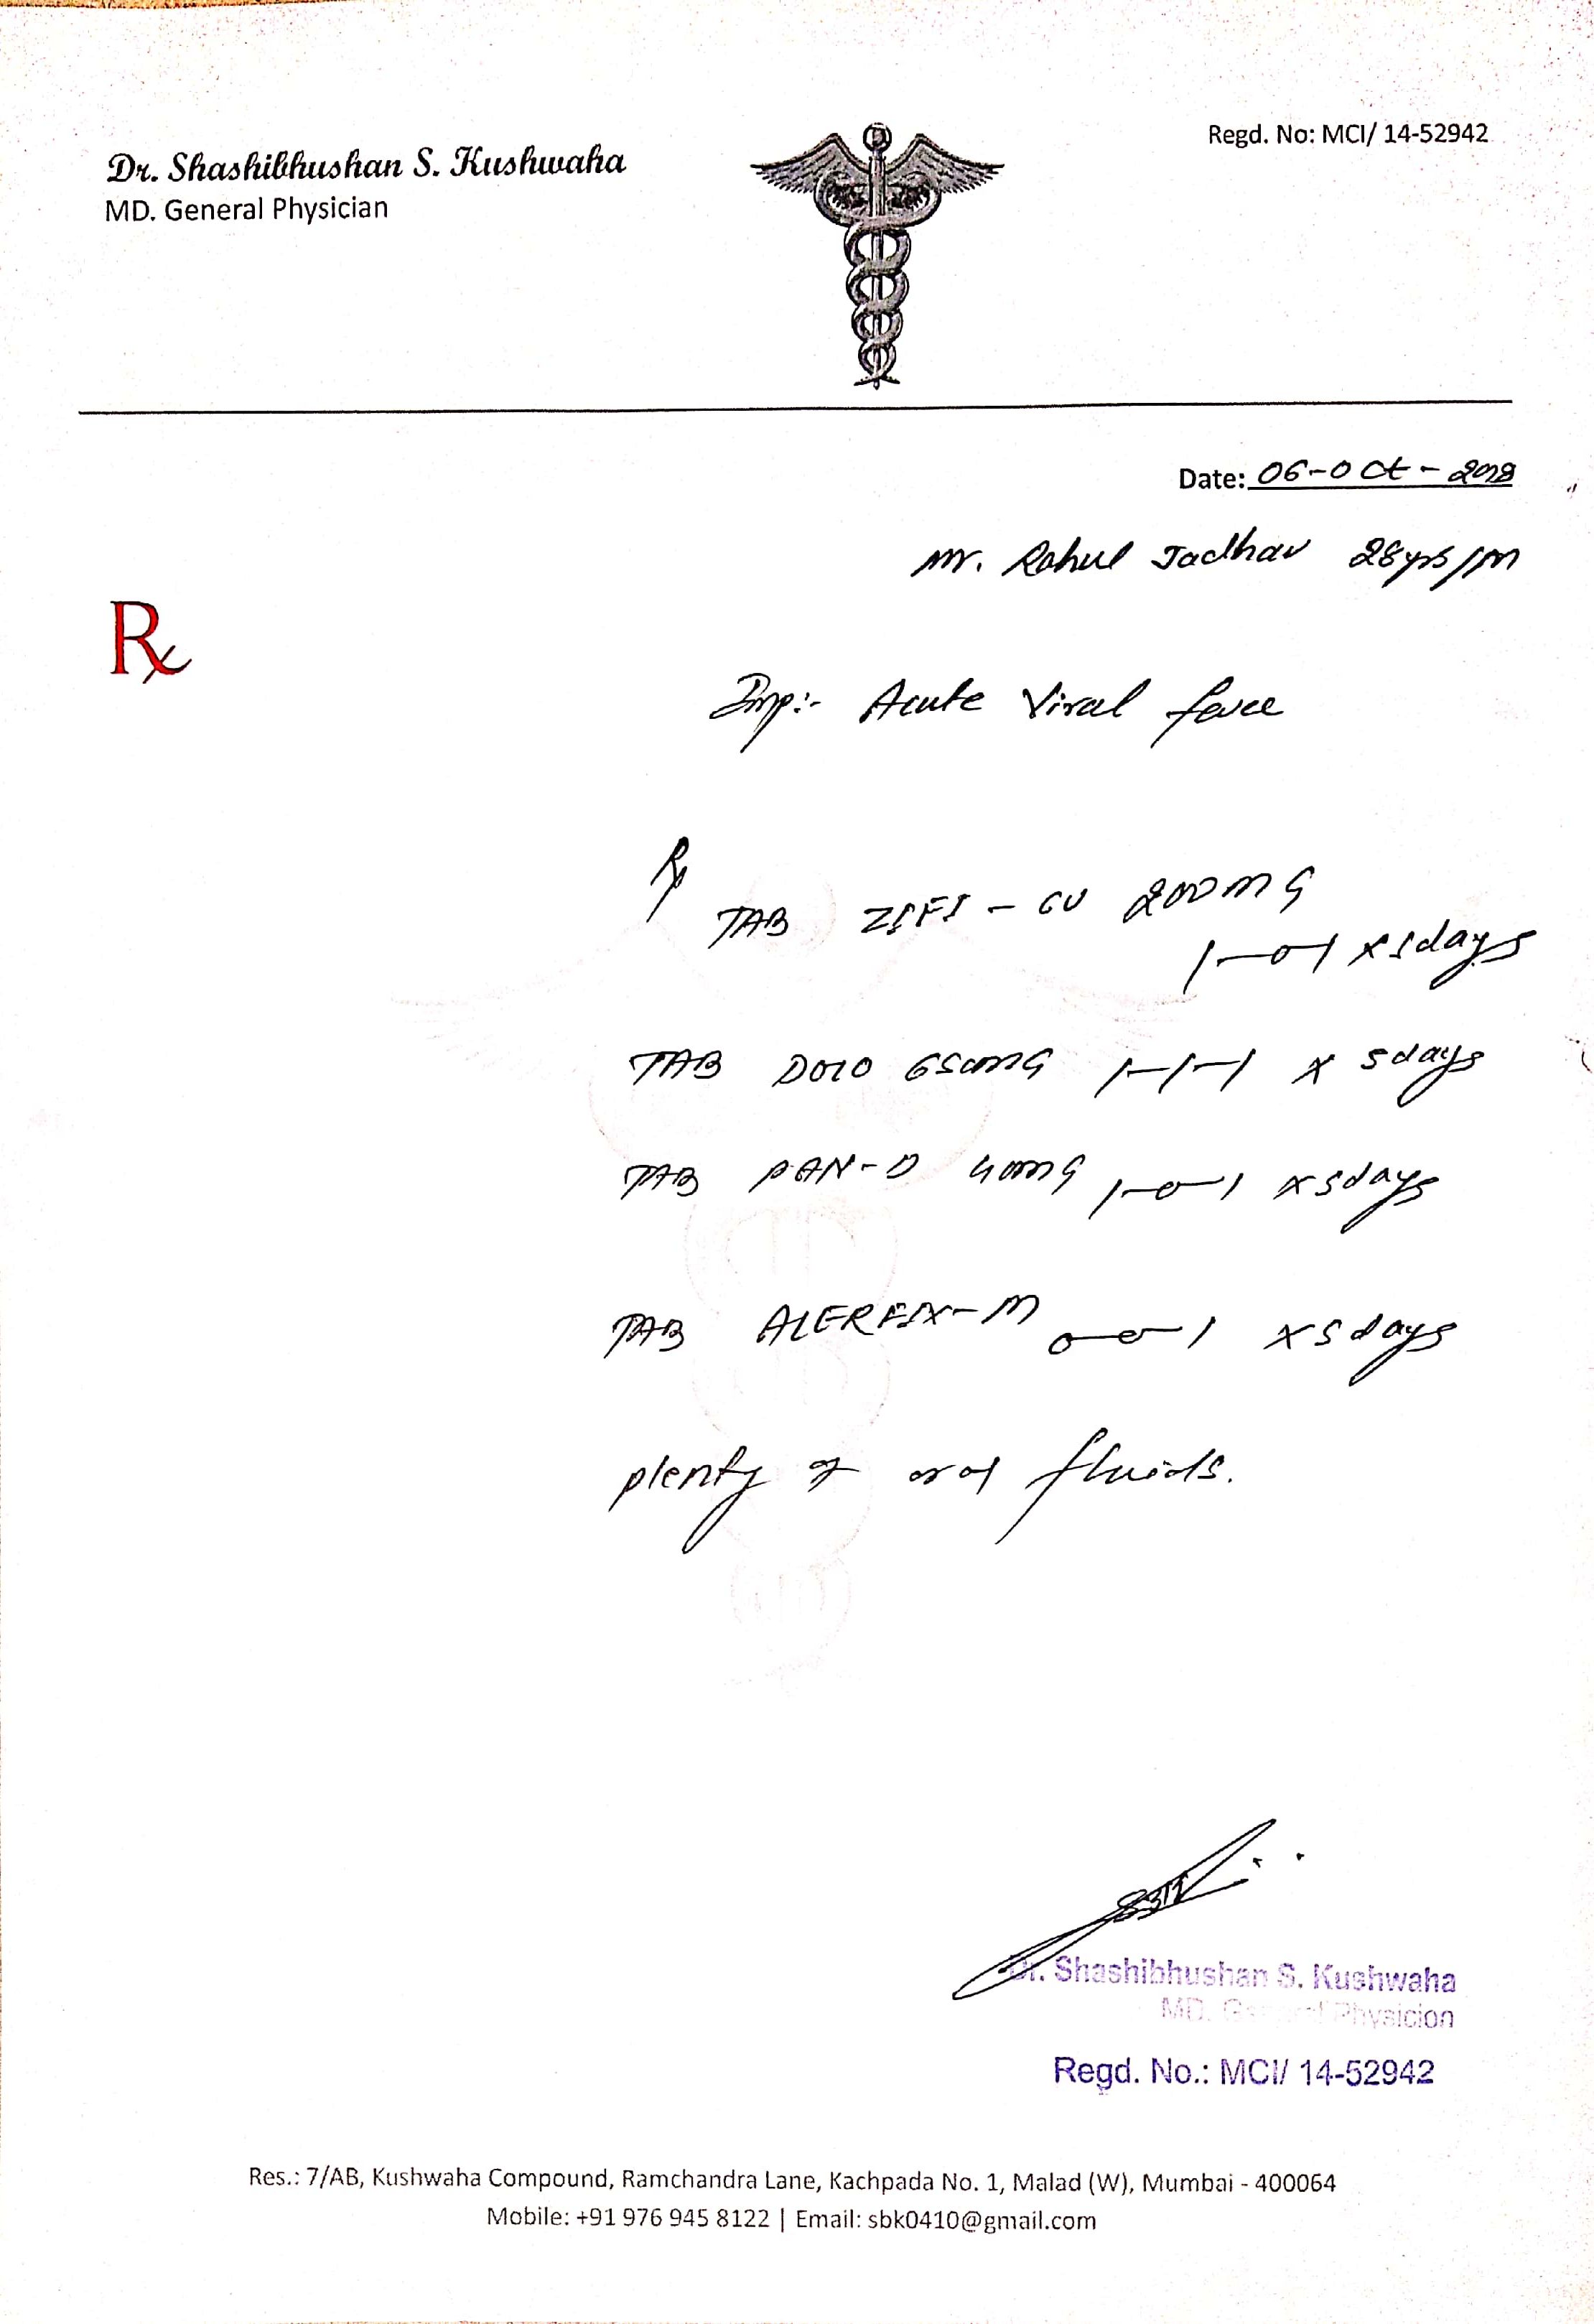 Dr. Shashibhushan S. Kushwaha
MD. General Physician
Regd. No: MCI/ 14-52942
Date: 06-Oct-2018
Mr. Rahul Jadhav 28yrs/M
Rx
Imp:- Acute Viral fever
Rx
TAB ZIFI-CV 200MG
1-0-1 x 5days
TAB DOLO 650MG 1-1-1 x 5days
TAB PAN-D 40MG 1-0-1 x 5days
TAB ALERFIX-M 0-0-1 x 5days
plenty of oral fluids.
Dr. Shashibhushan S. Kushwaha
MD. General Physicion
Regd. No.: MCI/ 14-52942
Res.: 7/AB, Kushwaha Compound, Ramchandra Lane, Kachpada No. 1, Malad (W), Mumbai - 400064
Mobile: +91 976 945 8122 | Email: sbk0410@gmail.com